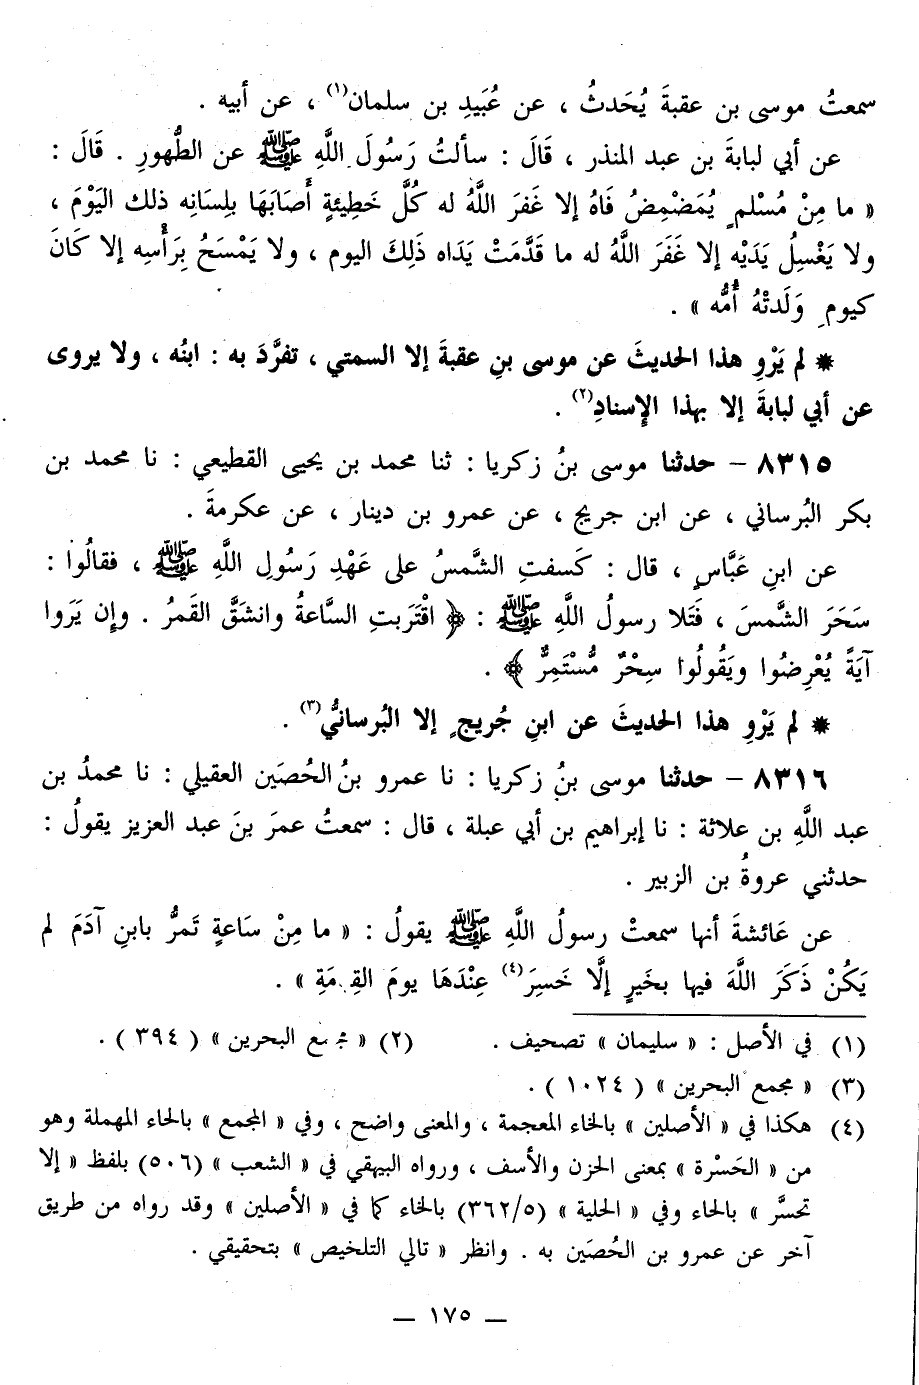 سمعتُ موسى بن عقبةَ يُحَدثُ ، عن عُبَيدِ بن سلمان(١) ، عن أبيه .
عن أبي لبابةَ بن عبد المنذر ، قَالَ : سألتُ رَسُولَ اللَّهِ ﷺ عن الطُّهورِ . قَالَ :
« ما مِنْ مُسْلمٍ يُمَضْمِضُ فَاهُ إلا غفَرَ اللَّهُ له كُلَّ خَطِيئةٍ أَصَابَهَا بلِسَانِه ذلك اليَوْمَ ،
ولا يَغْسِلُ يَدَيْه إلا غَفَرَ اللَّهُ له ما قَدَّمَتْ يَدَاه ذَلِكَ اليوم ، ولا يَمْسَحُ بِرَأْسِه إلا كَانَ
كيومِ وَلَدتْهُ أُمُّه » .
* لم يَرْوِ هذا الحديثَ عن موسى بنِ عقبةَ إلا السمتي ، تفرَّدَ به : ابنُه ، ولا يروى
عن أبي لبابةَ إلا بهذا الإسنادِ(٢) .
٨٣١٥ – حدثنا موسى بنُ زكريا : ثنا محمد بن يحيى القطيعي : نا محمد بن
بكر البُرساني ، عن ابن جريج ، عن عمرو بن دينار ، عن عكرمةَ .
عن ابنِ عَبَّاسٍ ، قال : كَسفتِ الشَّمسُ على عَهْدِ رَسُولِ اللَّهِ ﷺ ، فقالُوا :
سَحَرَ الشَّمسَ ، فَتَلا رسولُ اللَّهِ ﷺ : ﴿ اقْتَرَبتِ السَّاعةُ وانشَقَّ القَمرُ . وإن يَرَوا
آيَةً يُعْرِضُوا ويَقُولُوا سِحْرٌ مُّسْتَمِرٌّ ﴾ .
* لم يَرْوِ هذا الحديثَ عن ابنِ جُريجٍ إلا البُرسانيُّ(٣) .
٨٣١٦ – حدثنا موسى بنُ زكريا : نا عمرو بنُ الحُصَين العقيلي : نا محمدُ بن
عبد اللَّهِ بن علاثة : نا إبراهيم بن أبي عبلة ، قال : سمعتُ عمرَ بنَ عبد العزيز يقولُ :
حدثني عروةُ بن الزبير .
عن عَائشةَ أنها سمعتْ رسولُ اللَّهِ ﷺ يقولُ : « ما مِنْ سَاعةٍ تَمرُّ بابنِ آدَمَ لم
يَكُنْ ذَكَرَ اللَّهَ فيها بخَيرٍ إلَّا خَسِرَ(٤) عِنْدَهَا يومَ القِيَمَةِ » .
(١) في الأصل : « سليمان » تصحيف . (٢) « مجمع البحرين » ( ٣٩٤ ) .
(٣) « مجمع البحرين » ( ١٠٢٤ ) .
(٤) هكذا في « الأصلين » بالخاء المعجمة ، والمعنى واضح ، وفي « المجمع » بالحاء المهملة وهو
من « الحَسْرة » بمعنى الحزن والأسف ، ورواه البيهقي في « الشعب » (٥٠٦) بلفظ « إلا
تحسَّر » بالحاء وفي « الحلية » (٣٦٢/٥) بالخاء كما في « الأصلين » وقد رواه من طريق
آخر عن عمرو بن الحُصَين به . وانظر « تالي التلخيص » بتحقيقي .
— ١٧٥ —